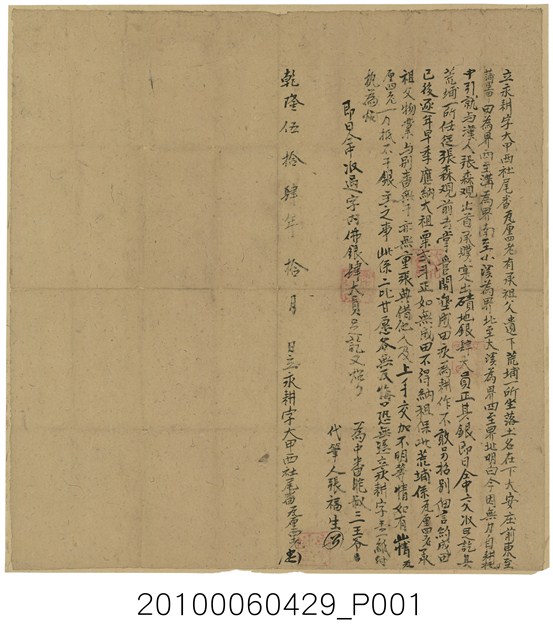 立永耕字大甲西社尾番瓦厘四老有承祖父遺下荒埔一所坐落土名在下大安庄前東至
蕃田為界西至溝為界南至小溪為界北至大溪為界四至界址明白今因無力自耕托
中引就与漢人張森觀出首承贌定出磧地銀肆大員正其銀即日仝中交收足訖其
荒埔一所任從張森觀前去掌管開墾成田永為耕作不敢另招別佃言約成田
已後逐年早季應納大租粟弍斗正如無成田不得納租保此荒埔係瓦厘四老承
祖父物業与別番無干亦無重張典借他人及上手交加不明等情如有此情瓦
厘四老一力抵不干銀主之事此係二比甘愿各無反悔口恐無憑立永耕字壹紙付
執為炤
即日仝中收過字內佛銀肆大員足訖又炤
為中番 三王爷
代筆人張福生
乾隆伍拾肆年拾月 日立永耕字大甲西社尾番瓦厘四老
20100060429_P001